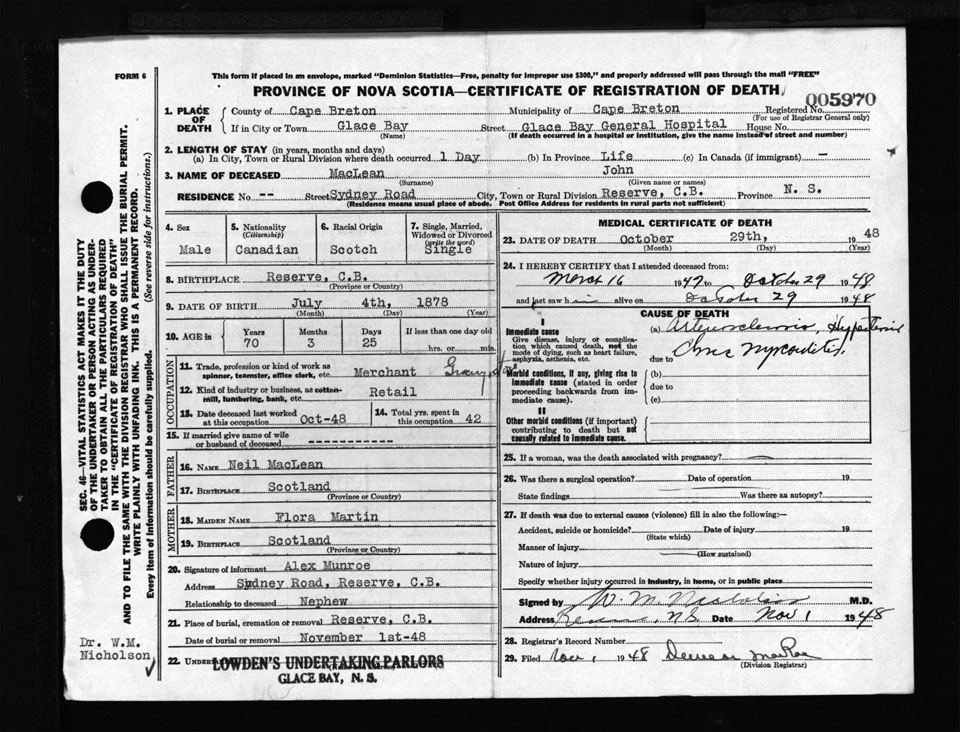 FORM 6
This form if placed in an envelope, marked "Dominion Statistics—Free, penalty for improper use $300," and properly addressed will pass through the mail "FREE"
PROVINCE OF NOVA SCOTIA—CERTIFICATE OF REGISTRATION OF DEATH
005970
1. PLACE OF DEATH County of Cape Breton Municipality of Cape Breton Registered No.
(For use of Registrar General only)
If in City or Town Glace Bay Street Glace Bay General Hospital House No.
(Name) (If death occurred in a hospital or institution, give the name instead of street and number)
2. LENGTH OF STAY (in years, months and days)
(a) In City, Town or Rural Division where death occurred 1 Day (b) In Province Life (c) In Canada (if immigrant) —
3. NAME OF DECEASED MacLean John
(Surname) (Given name or names)
RESIDENCE No. -- Street Sydney Road City, Town or Rural Division Reserve, C.B. Province N. S.
(Residence means usual place of abode. Post Office Address for residents in rural parts not sufficient)
4. Sex
Male
5. Nationality
(Citizenship)
Canadian
6. Racial Origin
Scotch
7. Single, Married, Widowed or Divorced
(write the word)
Single
8. BIRTHPLACE Reserve, C.B.
(Province or Country)
9. DATE OF BIRTH July 4th, 1878
(Month) (Day) (Year)
10. AGE in Years Months Days If less than one day old
70 3 25 hrs. or min.
OCCUPATION
11. Trade, profession or kind of work as spinner, teamster, office clerk, etc. Merchant
12. Kind of industry or business, as cotton-mill, lumbering, bank, etc. Retail
13. Date deceased last worked at this occupation Oct-48
14. Total yrs. spent in this occupation 42
15. If married give name of wife or husband of deceased ----------
FATHER
16. NAME Neil MacLean
17. BIRTHPLACE Scotland
(Province or Country)
MOTHER
18. MAIDEN NAME Flora Martin
19. BIRTHPLACE Scotland
(Province or Country)
20. Signature of informant Alex Munroe
Address Sydney Road, Reserve, C.B.
Relationship to deceased Nephew
21. Place of burial, cremation or removal Reserve, C.B.
Date of burial or removal November 1st-48
22. LOWDEN'S UNDERTAKING PARLORS
GLACE BAY, N. S.
MEDICAL CERTIFICATE OF DEATH
23. DATE OF DEATH October 29th, 1948
(Month) (Day) (Year)
24. I HEREBY CERTIFY that I attended deceased from:
March 16 1947 to October 29 1948
and last saw him alive on October 29 1948
CAUSE OF DEATH
I
Immediate cause
Give disease, injury or complication which caused death, not the mode of dying, such as heart failure, asphyxia, asthenia, etc.
(a) Arteriosclerosis, Hypertension
due to
Morbid conditions, if any, giving rise to immediate cause (stated in order proceeding backwards from immediate cause).
(b)
due to
(c)
II
Other morbid conditions (if important) contributing to death but not causally related to immediate cause.
25. If a woman, was the death associated with pregnancy?
26. Was there a surgical operation? Date of operation 19
State findings Was there an autopsy?
27. If death was due to external causes (violence) fill in also the following:—
Accident, suicide or homicide? Date of injury 19
(State which)
Manner of injury
(How sustained)
Nature of injury
Specify whether injury occurred in industry, in home, or in public place
Signed by W. M. Nicholson M.D.
Address Reserve, N.S. Date Nov 1 1948
28. Registrar's Record Number
29. Filed Nov 1 1948
(Division Registrar)
SEC. 46—VITAL STATISTICS ACT MAKES IT THE DUTY
OF THE UNDERTAKER OR PERSON ACTING AS UNDER-
TAKER TO OBTAIN ALL THE PARTICULARS REQUIRED
IN THE "CERTIFICATE OF REGISTRATION OF DEATH"
AND TO FILE THE SAME WITH THE DIVISION REGISTRAR WHO SHALL ISSUE THE BURIAL PERMIT.
WRITE PLAINLY WITH UNFADING INK. THIS IS A PERMANENT RECORD.
Every item of information should be carefully supplied. (See reverse side for instructions.)
Dr. W.M.
Nicholson